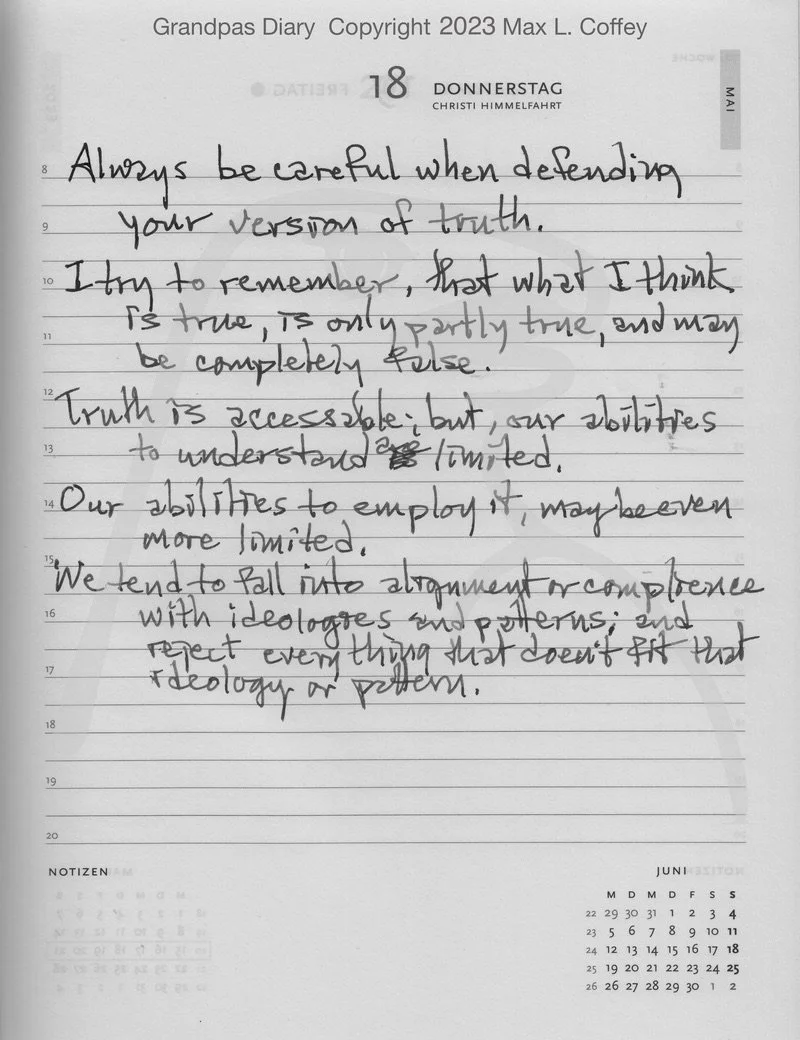 Grandpas Diary Copyright 2023 Max L. Coffey
18 DONNERSTAG
CHRISTI HIMMELFAHRT
MAI
8 Always be careful when defending
9 your version of truth.
10 I try to remember, that what I think
is true, is only partly true, and may
11 be completely false.
12 Truth is accessable; but, our abilities
13 to understand are limited.
14 Our abilities to employ it, may be even
more limited.
15 We tend to fall into alignment or complience
16 with ideologies and patterns; and
reject everything that doesn't fit that
17 ideology or pattern.
18
19
20
NOTIZEN
JUNI
M D M D F S S
22 29 30 31 1 2 3 4
23 5 6 7 8 9 10 11
24 12 13 14 15 16 17 18
25 19 20 21 22 23 24 25
26 26 27 28 29 30 1 2